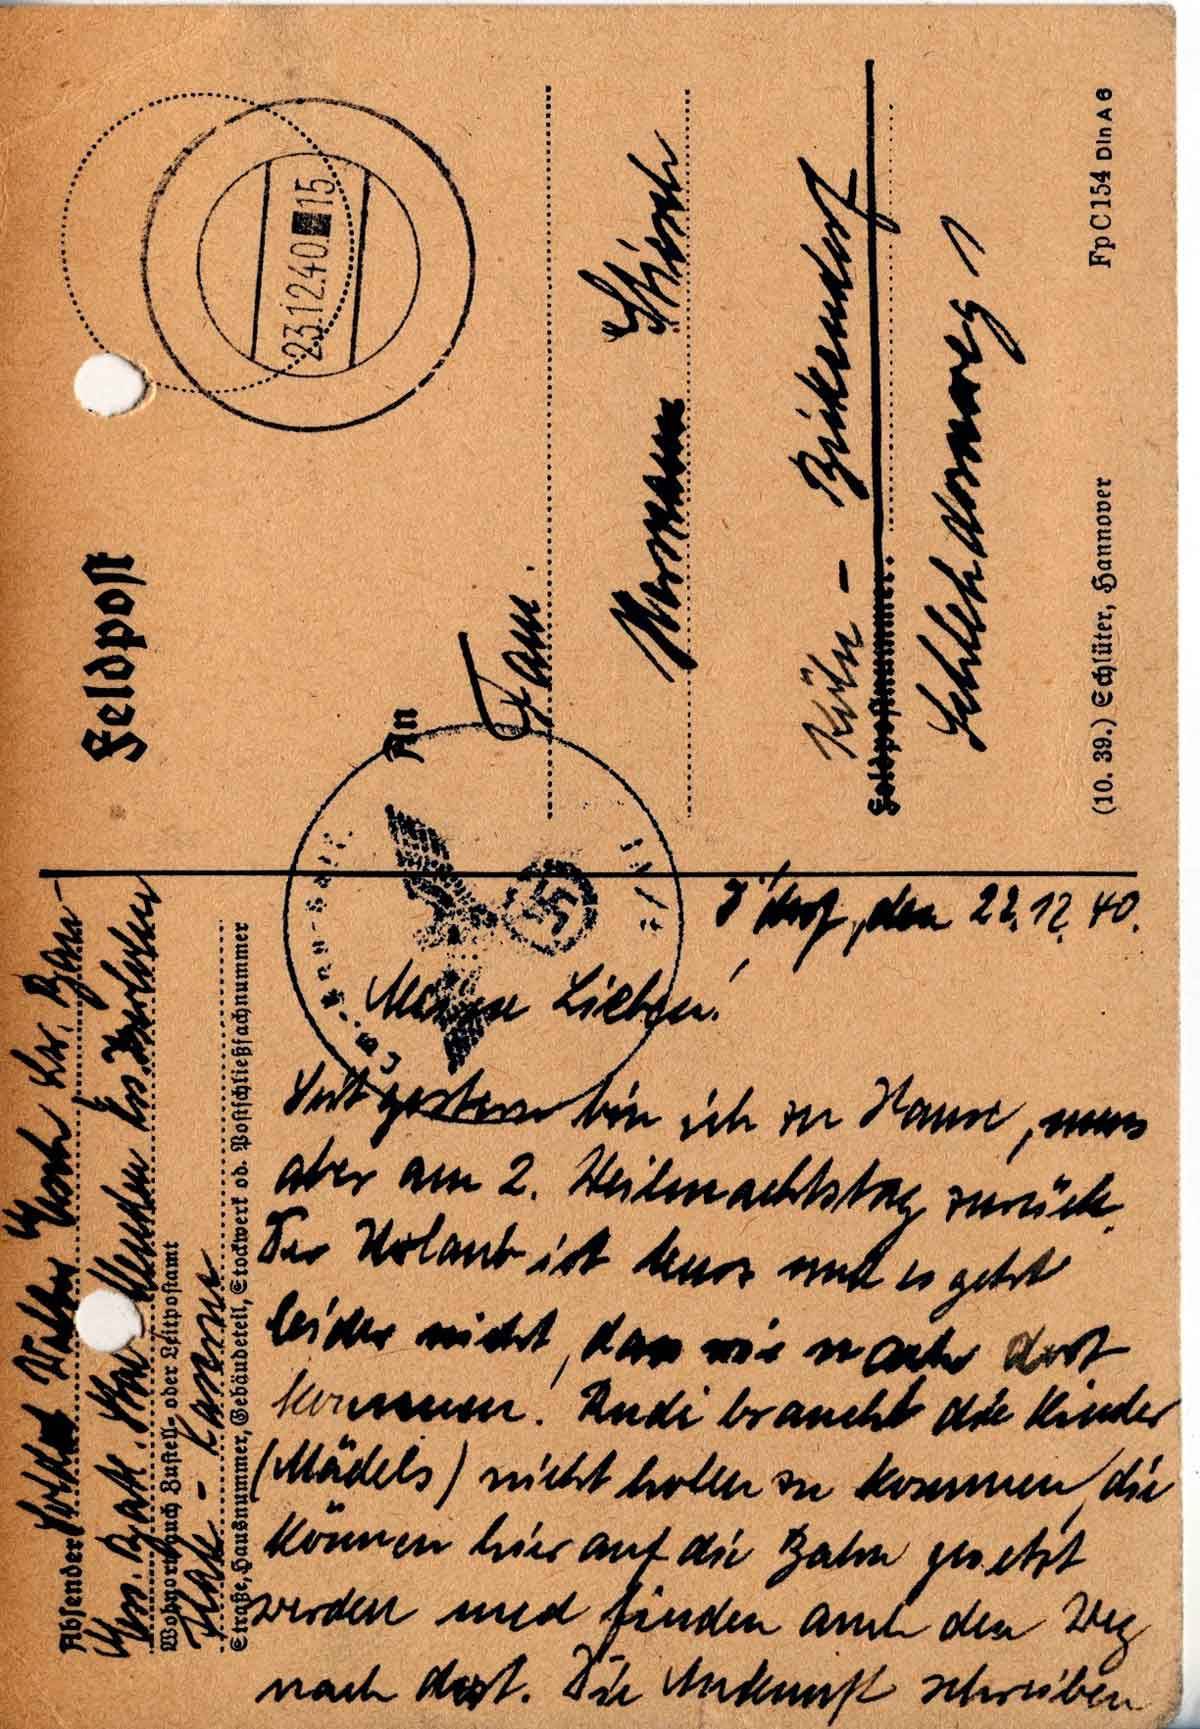 Feldpost
23.12.40 15
An
Fam.
Hermann
Köln - Bickendorf
Feldpostnummer
Schlehdornweg 1
(10. 39.) Schlüter, Hannover
Fp C 154 Din A 6
Absender Soldat
Wohnort, auch Zustell- oder Leitpostamt
Flak - Kaserne
Straße, Hausnummer, Gebäudeteil, Stockwerk od. Postschließfachnummer
D'dorf, den 22.12.40.
Meine Lieben!
Seit gestern bin ich zu Hause, muss
aber am 2. Weihnachtstag zurück.
Der Urlaub ist kurz und es geht
leider nicht, dass wir nach dort
kommen. Rudi braucht die Kinder
(Mädels) nicht holen zu kommen, die
können hier auf die Bahn gesetzt
werden und finden auch den Weg
nach dort. Die Ankunft schreiben